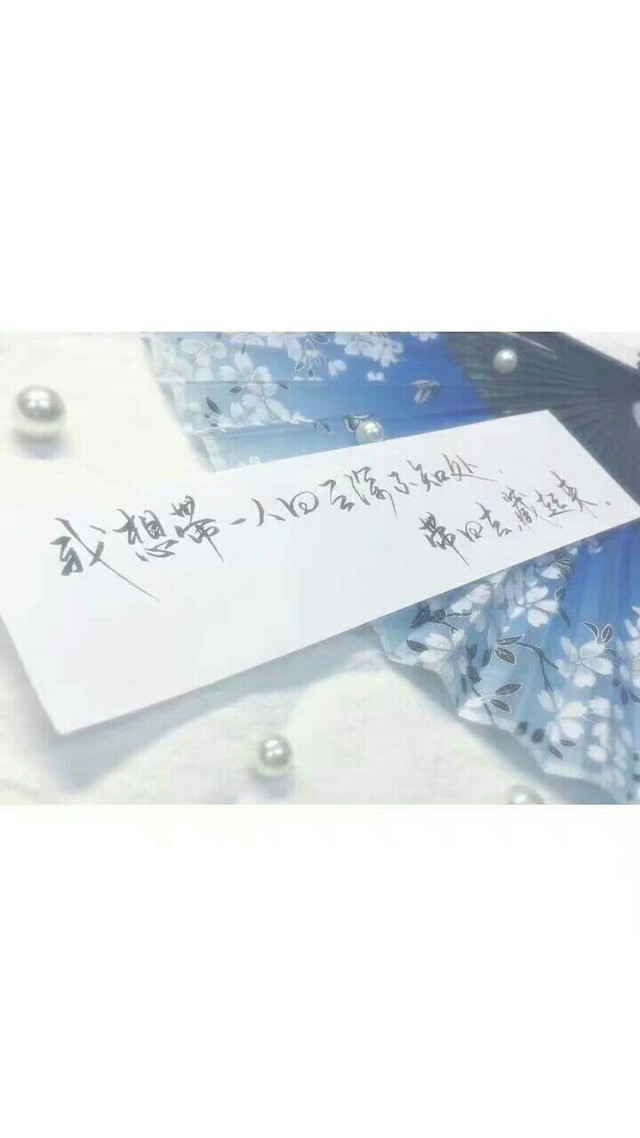 我想带一人回云深不知处，
带回去 藏起来。